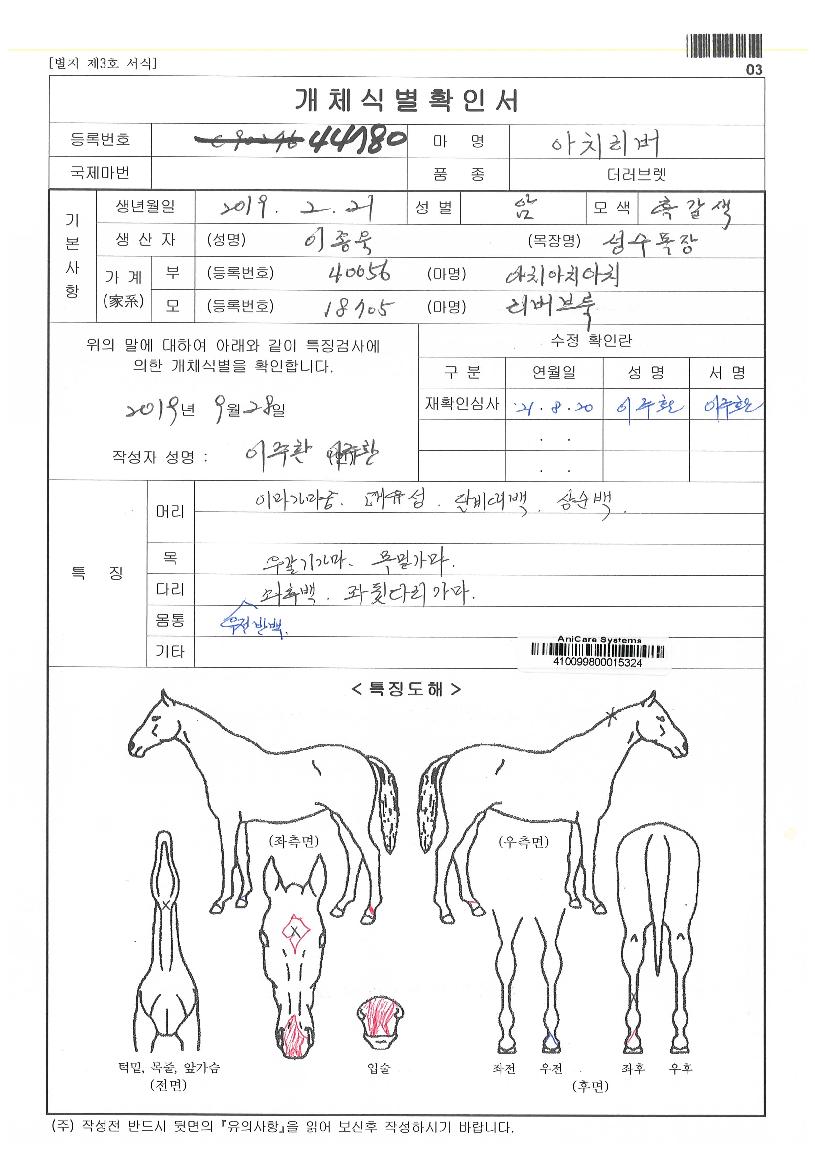 [별지 제3호 서식]
03
개체식별확인서
등록번호 44780 마 명 아치리버
국제마번 품 종 더러브렛
기본사항
생년월일 2019. 2. 27 성 별 암 모 색 흑갈색
생 산 자 (성명) 이종욱 (목장명) 성수목장
가 계 (家系) 부 (등록번호) 40056 (마명) 아치아치아치
모 (등록번호) 18705 (마명) 리버브룩
위의 말에 대하여 아래와 같이 특징검사에
의한 개체식별을 확인합니다.
2019년 9월 28일
작성자 성명 : 이주환 이주환
수정 확인란
구 분 연월일 성 명 서 명
재확인심사 '21. 8. 20
. .
. .
특 징
머리
목 우갈기가마. 목밑가마.
다리 좌후백. 좌뒷다리가마.
몸통 우전반백.
기타
AniCare Systems
410099800015324
< 특징도해 >
(좌측면) (우측면)
턱밑, 목줄, 앞가슴
(전면)
입술
좌전 우전 좌후 우후
(후면)
(주) 작성전 반드시 뒷면의 『유의사항』을 읽어 보신후 작성하시기 바랍니다.